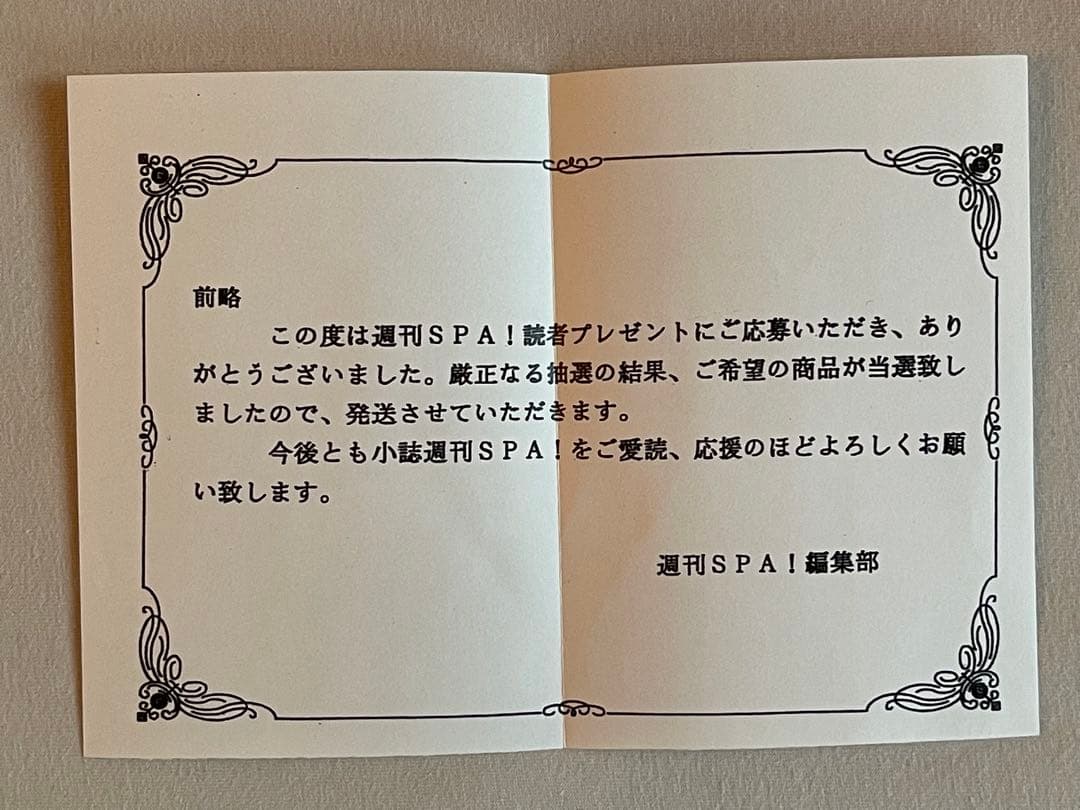 前略
この度は週刊ＳＰＡ！読者プレゼントにご応募いただき、あり
がとうございました。厳正なる抽選の結果、ご希望の商品が当選致し
ましたので、発送させていただきます。
今後とも小誌週刊ＳＰＡ！をご愛読、応援のほどよろしくお願
い致します。
週刊ＳＰＡ！編集部